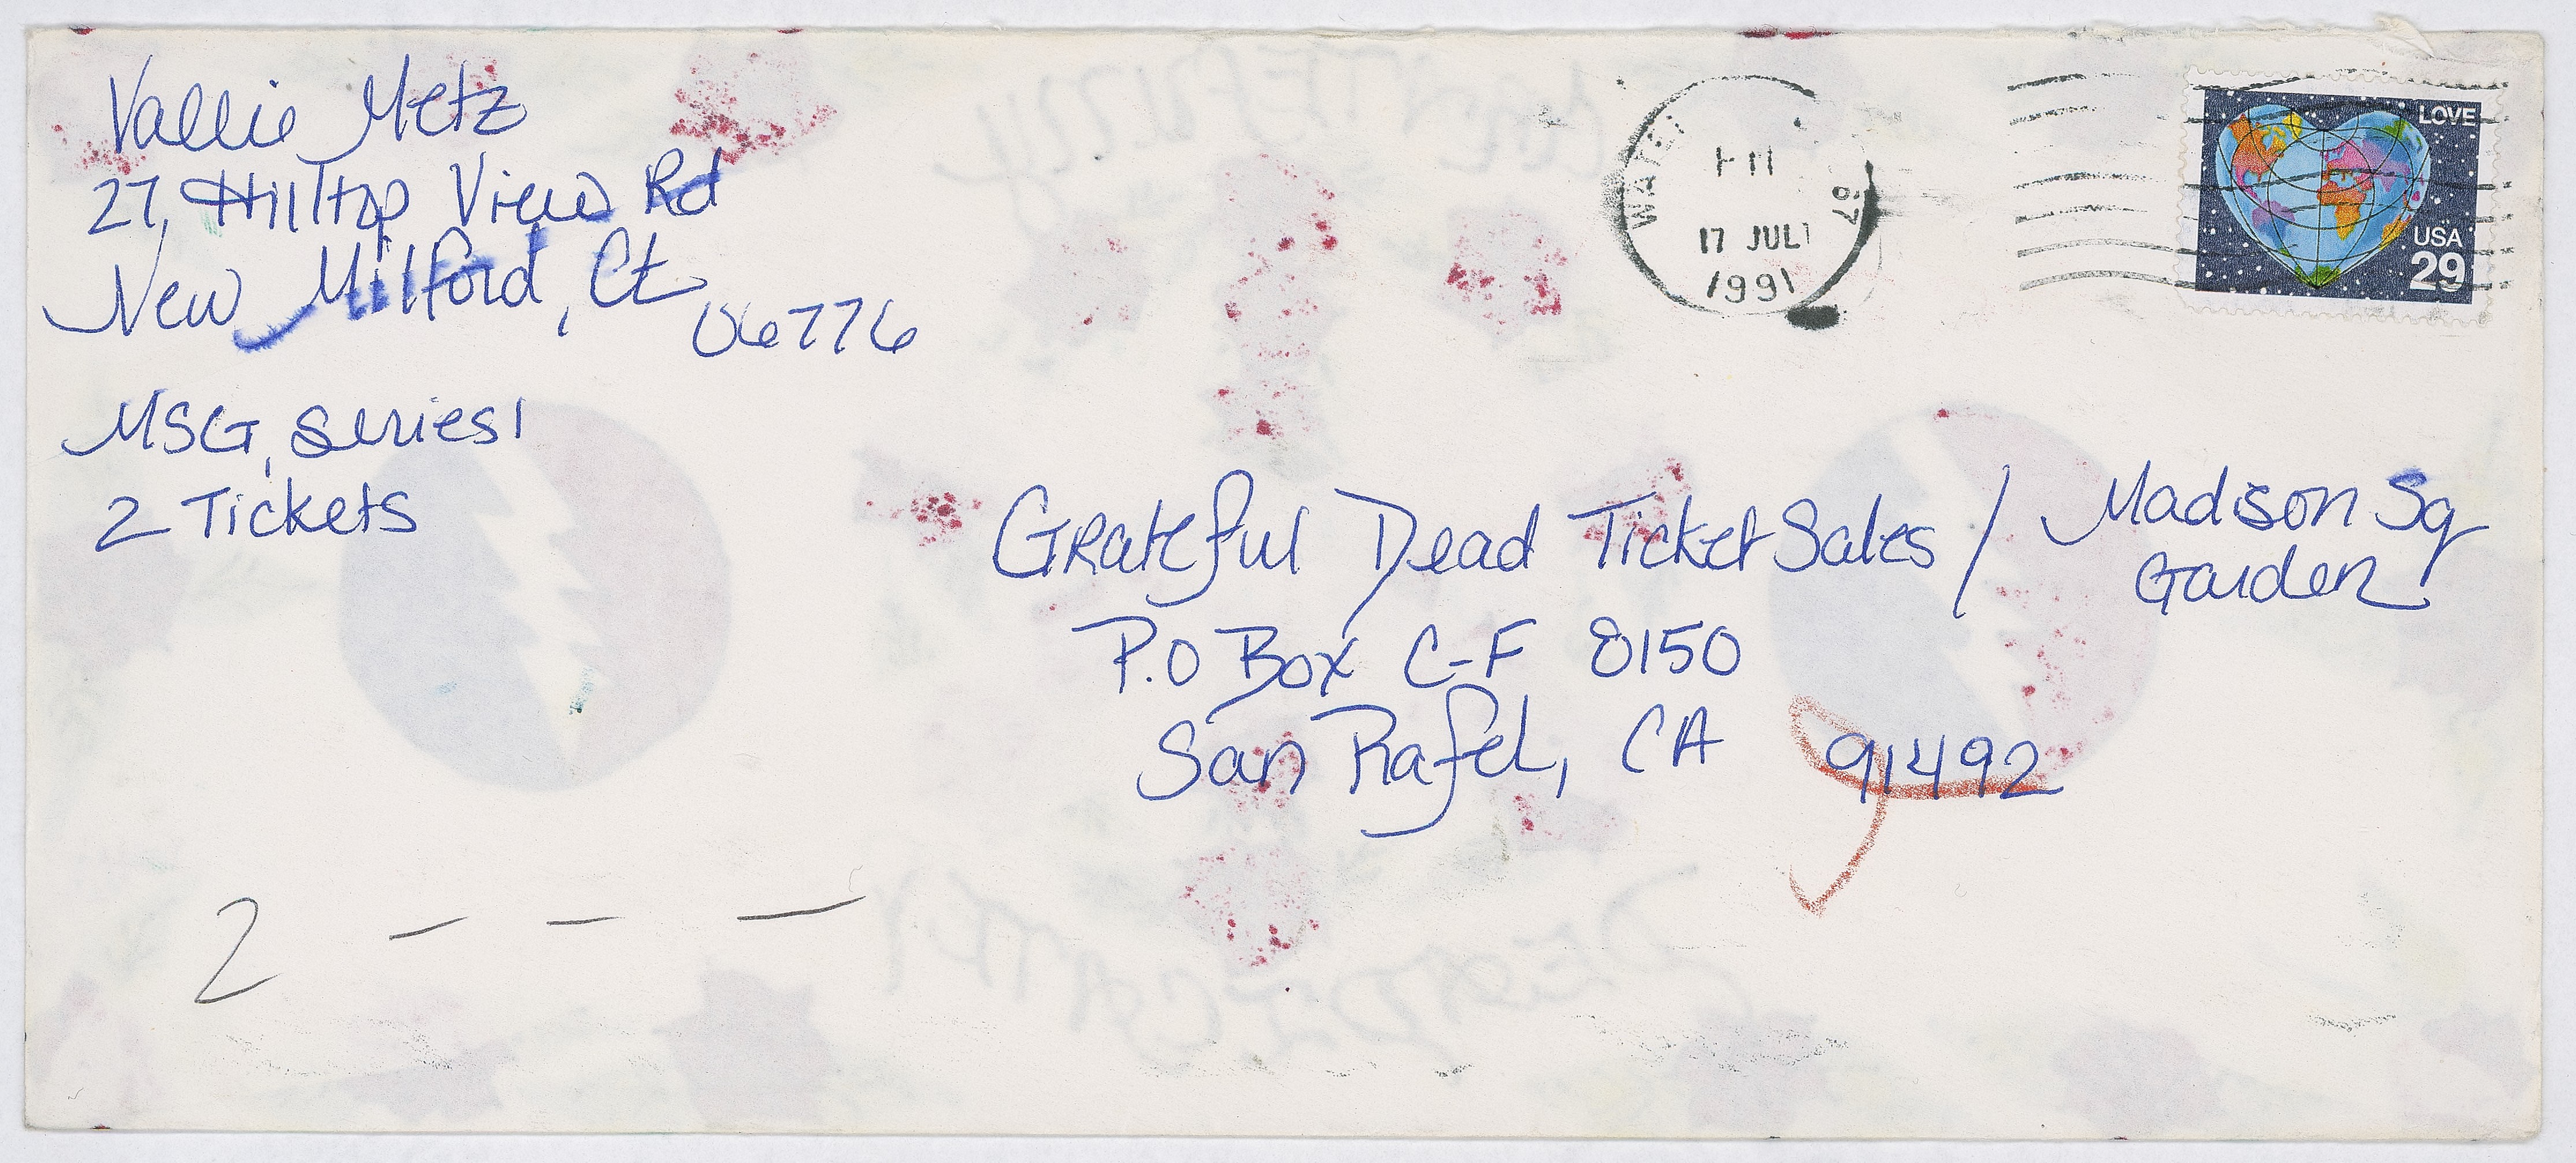 Vallie Metz
27, Hilltop View Rd
New Milford, Ct
06776
MSG, Series 1
2 Tickets
17 JUL
1991
LOVE
USA
29
Grateful Dead Ticket Sales / Madison Sq
Garden
P.O Box C-F 8150
San Rafel, CA 91492
2 - - -